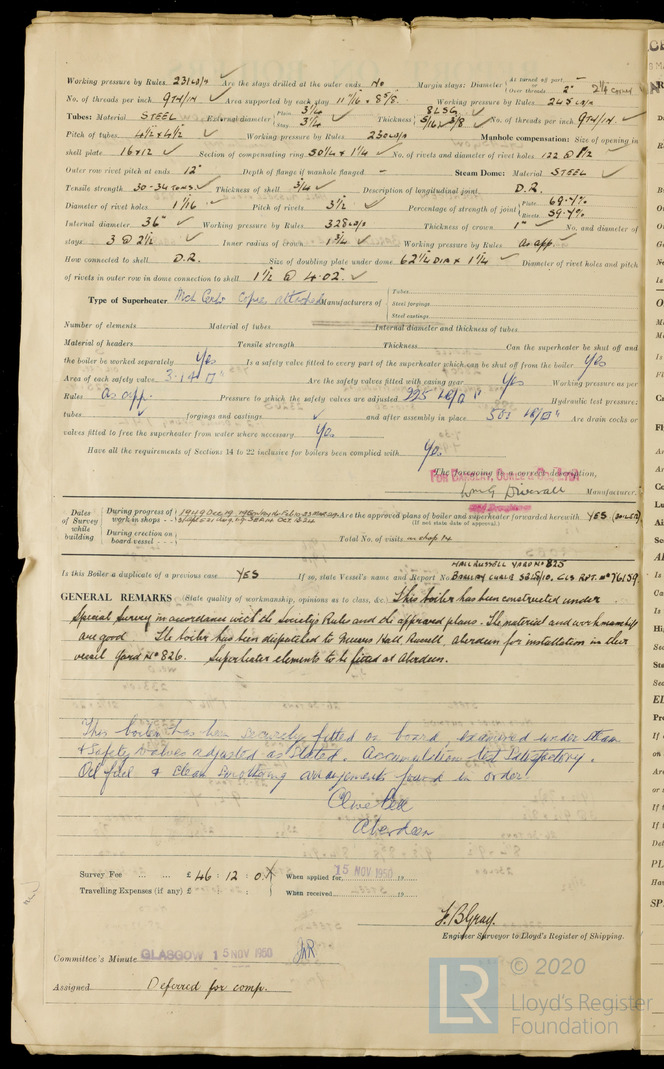 Working pressure by Rules 231 LB/□" Are the stays drilled at the outer ends No Margin stays: Diameter { At turned off part, or Over threads 2" 2¼ corner
No. of threads per inch 9TH/IN Area supported by each stay 11 11/16 × 8 5/8 Working pressure by Rules 245 LB/□
Tubes: Material STEEL External diameter { Plain 3¼ Stay 3¼ Thickness { 8LSG 5/16 & 3/8 No. of threads per inch 9TH/IN
Pitch of tubes 4½ × 4½ Working pressure by Rules 230 LB/□ Manhole compensation: Size of opening in
shell plate 16 × 12 Section of compensating ring 50¼ × 1¼ No. of rivets and diameter of rivet holes 122 @ 1½
Outer row rivet pitch at ends 12" Depth of flange if manhole flanged - Steam Dome: Material STEEL
Tensile strength 30-34 TONS Thickness of shell ¾ Description of longitudinal joint D.R.
Diameter of rivet holes 1 1/16 Pitch of rivets 3½ Percentage of strength of joint { Plate 69.7% Rivets 59.7%
Internal diameter 36" Working pressure by Rules 328 LB/□ Thickness of crown 1" No. and diameter of
stays 3 @ 2½ Inner radius of crown 1¾ Working pressure by Rules As app.
How connected to shell D.R. Size of doubling plate under dome 62¼ DIA × 1¼ Diameter of rivet holes and pitch
of rivets in outer row in dome connection to shell 1½ @ 4.02"
Type of Superheater Mch Certs Copies attached Manufacturers of { Tubes
Steel forgings
Steel castings
Number of elements Material of tubes Internal diameter and thickness of tubes
Material of headers Tensile strength Thickness Can the superheater be shut off and
the boiler be worked separately Yes Is a safety valve fitted to every part of the superheater which can be shut off from the boiler Yes
Area of each safety valve 3.14 □" Are the safety valves fitted with easing gear Yes Working pressure as per
Rules as app. Pressure to which the safety valves are adjusted 225 LB/□" Hydraulic test pressure:
tubes forgings and castings and after assembly in place 503 LB/□" Are drain cocks or
valves fitted to free the superheater from water where necessary Yes
Have all the requirements of Sections 14 to 22 inclusive for boilers been complied with Yes
The foregoing is a correct description,
FOR BARCLAY, CURLE & Co., LTD.
Manufacturer.
Dates of Survey while building { During progress of work in shops - - Are the approved plans of boiler and superheater forwarded herewith YES (BOILER)
(If not state date of approval.)
During erection on board vessel - - - Total No. of visits
HALL RUSSELL YARD No 825
Is this Boiler a duplicate of a previous case YES If so, state Vessel's name and Report No. BARCLAY CURLE GLS RPT. No 76159
GENERAL REMARKS (State quality of workmanship, opinions as to class, &c. This boiler has been constructed under
Special Survey in accordance with the Society's Rules and the approved plans. The material and workmanship
are good. The boiler has been dispatched to Messrs Hall, Russell, Aberdeen for installation in their
vessel Yard No 826. Superheater elements to be fitted at Aberdeen.
This boiler has been securely fitted on board, examined under steam
& Safety Valves adjusted as stated. Accumulation test satisfactory.
Oil fuel & steam smothering arrangements found in order.
Clive Bell
Aberdeen
Survey Fee ... ... £ 46 : 12 : 0 When applied for 15 NOV 1950 19
Travelling Expenses (if any) £ : : When received 19
F. B. Gray.
Engineer Surveyor to Lloyd's Register of Shipping.
Committee's Minute GLASGOW 15 NOV 1950
Assigned Deferred for comp.
LR © 2020
Lloyd's Register
Foundation